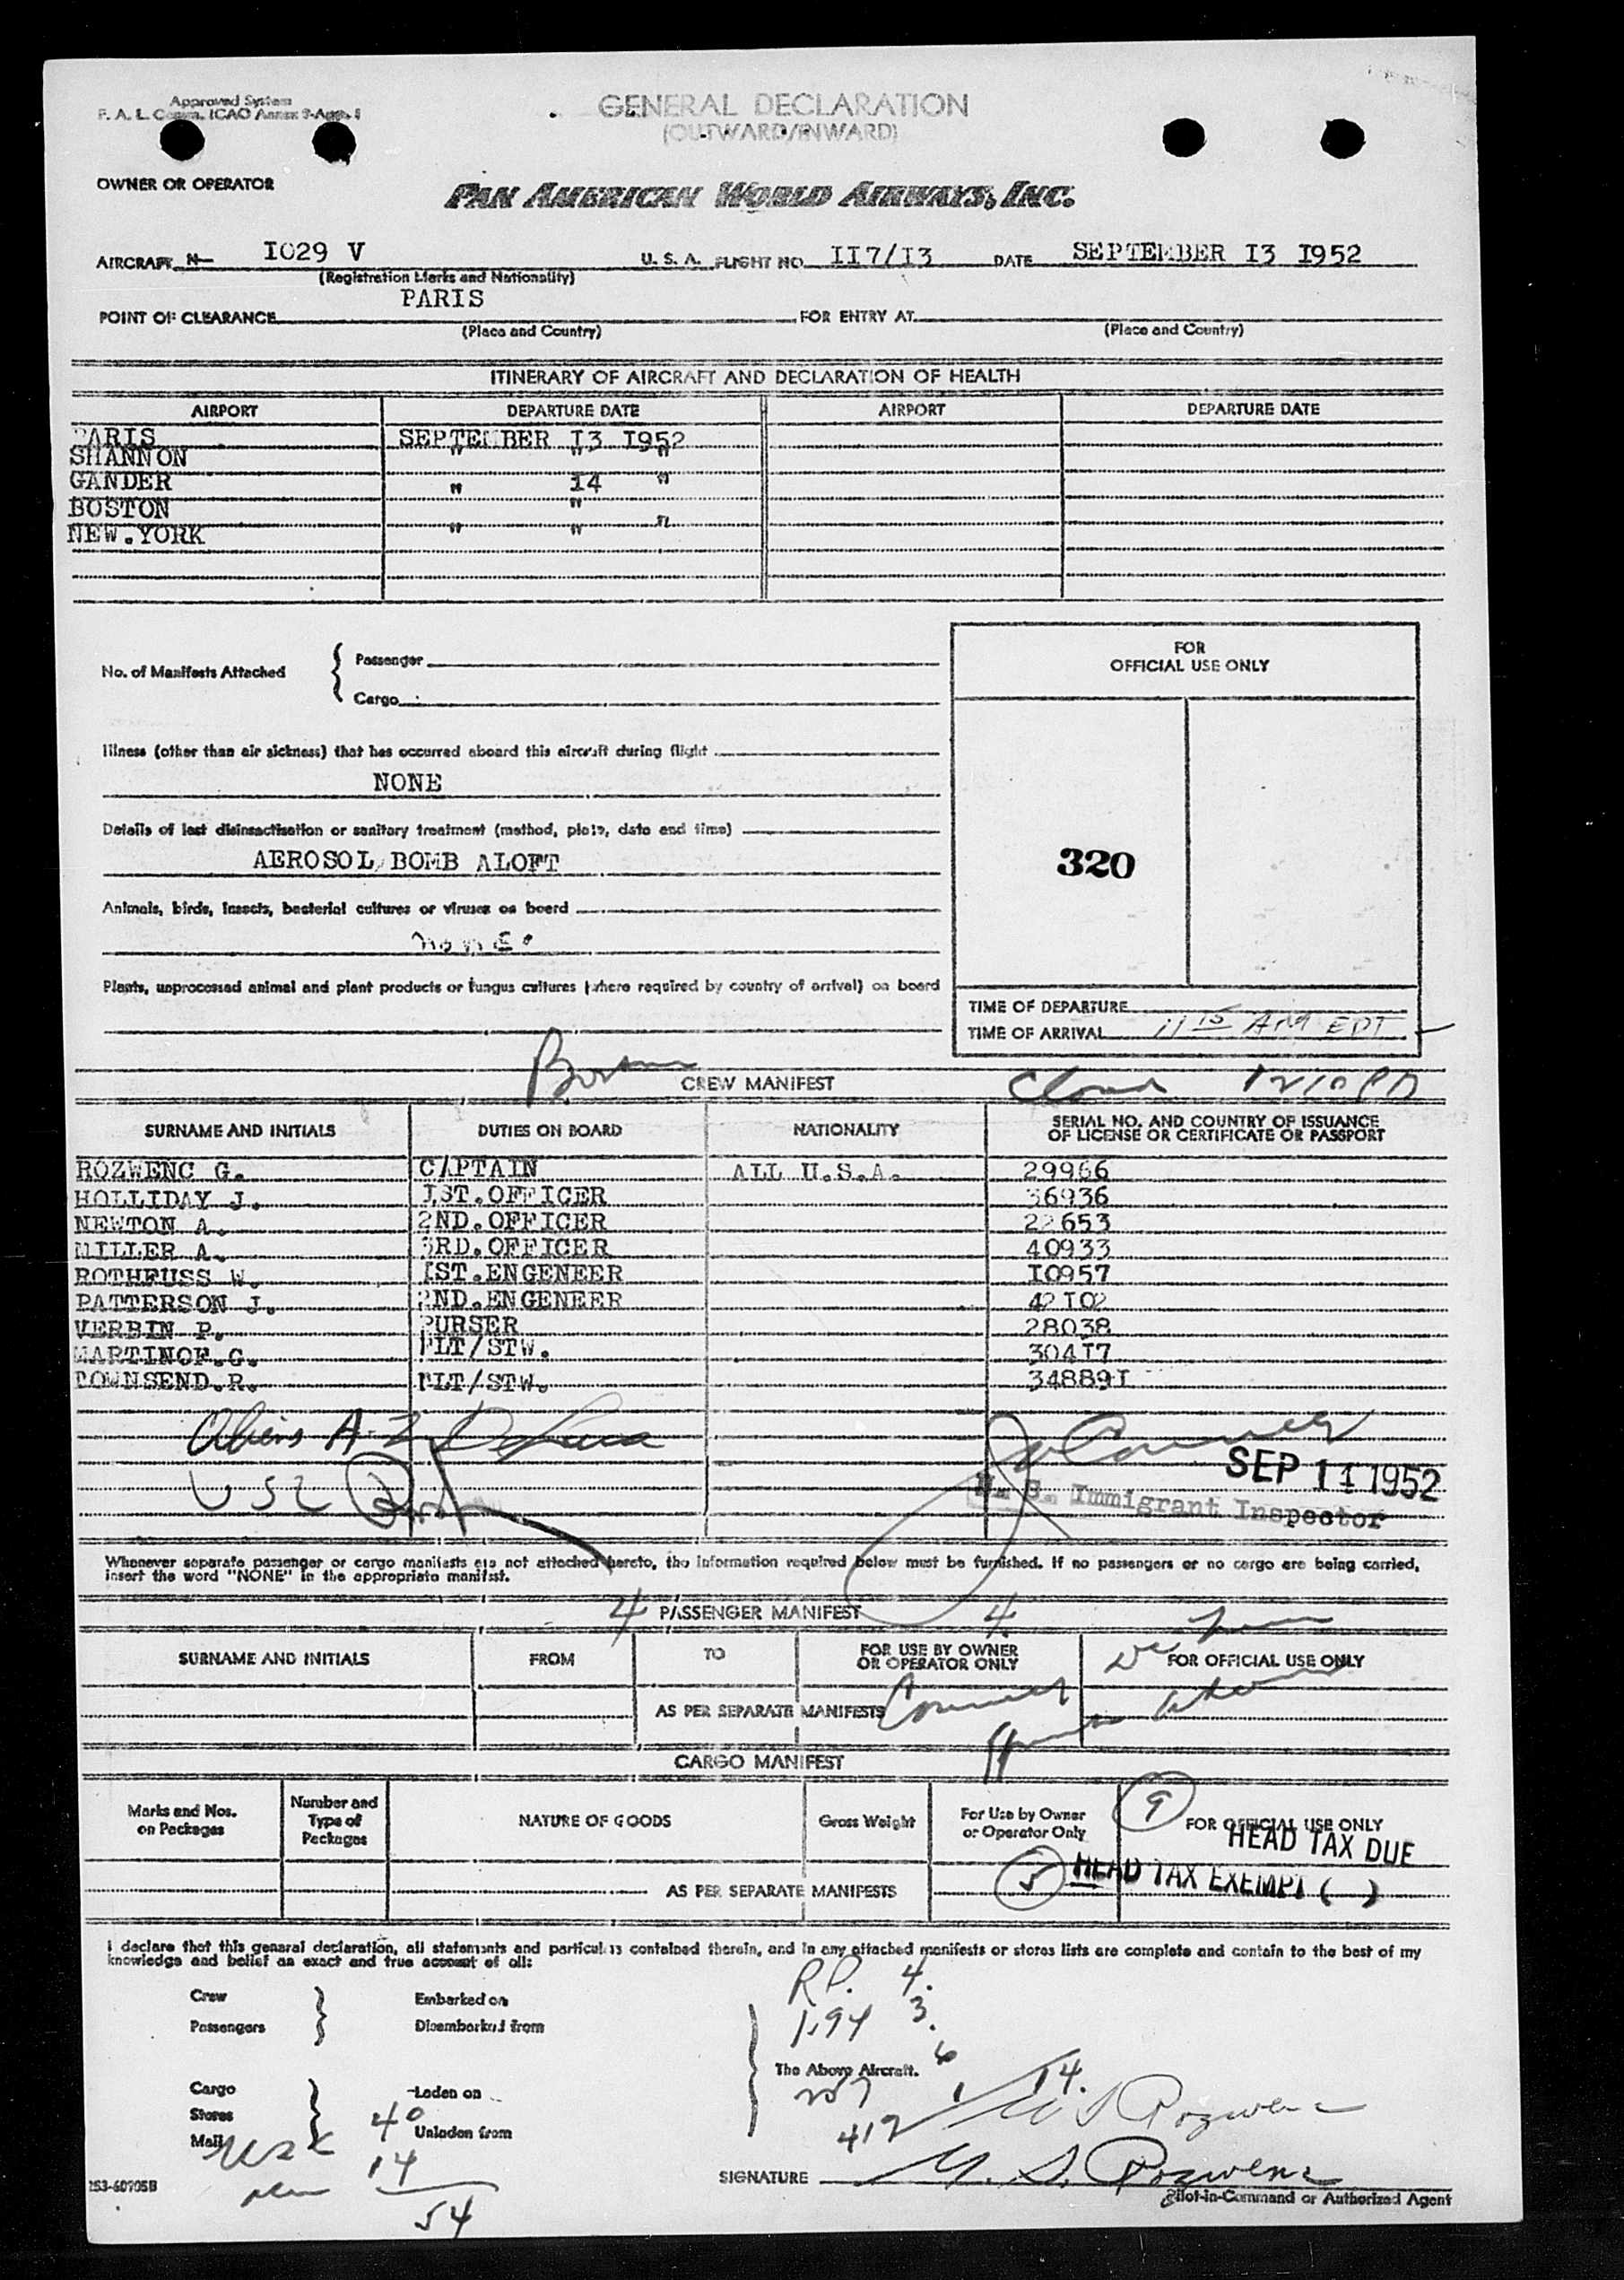 Approved System
F. A. L. Comm. ICAO Annex 9-App. 1
GENERAL DECLARATION
(OUTWARD/INWARD)
OWNER OR OPERATOR
PAN AMERICAN WORLD AIRWAYS, INC.
AIRCRAFT N- I029 V U. S. A. FLIGHT NO II7/I3 DATE SEPTEMBER I3 I952
(Registration Marks and Nationality)
PARIS
POINT OF CLEARANCE FOR ENTRY AT
(Place and Country) (Place and Country)
ITINERARY OF AIRCRAFT AND DECLARATION OF HEALTH
AIRPORT DEPARTURE DATE AIRPORT DEPARTURE DATE
PARIS SEPTEMBER I3 I952
SHANNON " " "
GANDER " I4 "
BOSTON "
NEW.YORK " " "
FOR
OFFICIAL USE ONLY
No. of Manifests Attached { Passenger
Cargo
Illness (other than air sickness) that has occurred aboard this aircraft during flight
NONE
Details of last disinsectisation or sanitary treatment (method, place, date and time)
AEROSOL BOMB ALOFT
320
Animals, birds, insects, bacterial cultures or viruses on board
NONE
Plants, unprocessed animal and plant products or fungus cultures (where required by country of arrival) on board
TIME OF DEPARTURE
TIME OF ARRIVAL 11 15 AM EDT
Boston
CREW MANIFEST
SURNAME AND INITIALS DUTIES ON BOARD NATIONALITY SERIAL NO. AND COUNTRY OF ISSUANCE
OF LICENSE OR CERTIFICATE OR PASSPORT
ROZWENC G. CAPTAIN ALL U.S.A. 29966
HOLLIDAY J. IST.OFFICER 36936
NEWTON A. 2ND.OFFICER 22653
MILLER A. 3RD.OFFICER 40933
ROTHFUSS W. IST.ENGENEER I0957
PATTERSON J. 2ND.ENGENEER 42I02
VERBIN P. PURSER 28038
MARTINOF.G. FLT/STW. 304I7
TOWNSEND.R. FLT/STW. 34889I
Aliens A-Z
SEP 11 1952
U. S. Immigrant Inspector
Whenever separate passenger or cargo manifests are not attached hereto, the information required below must be furnished. If no passengers or no cargo are being carried,
insert the word "NONE" in the appropriate manifest.
4 PASSENGER MANIFEST 4
SURNAME AND INITIALS FROM TO FOR USE BY OWNER
OR OPERATOR ONLY FOR OFFICIAL USE ONLY
AS PER SEPARATE MANIFESTS
CARGO MANIFEST
Marks and Nos.
on Packages Number and
Type of
Packages NATURE OF GOODS Gross Weight For Use by Owner
or Operator Only 9 FOR OFFICIAL USE ONLY
HEAD TAX DUE
5 HEAD TAX EXEMPT ( )
AS PER SEPARATE MANIFESTS
I declare that this general declaration, all statements and particulars contained therein, and in any attached manifests or stores lists are complete and contain to the best of my
knowledge and belief an exact and true account of all:
R.P. 4.
Crew Embarked on
Passengers Disembarked from
194 3.
The Above Aircraft. 6
Cargo Laden on
Stores 40
Mail Unladen from
207
14.
412
14
SIGNATURE G. S. Rozwenc
Pilot-in-Command or Authorized Agent
253-60705B
54